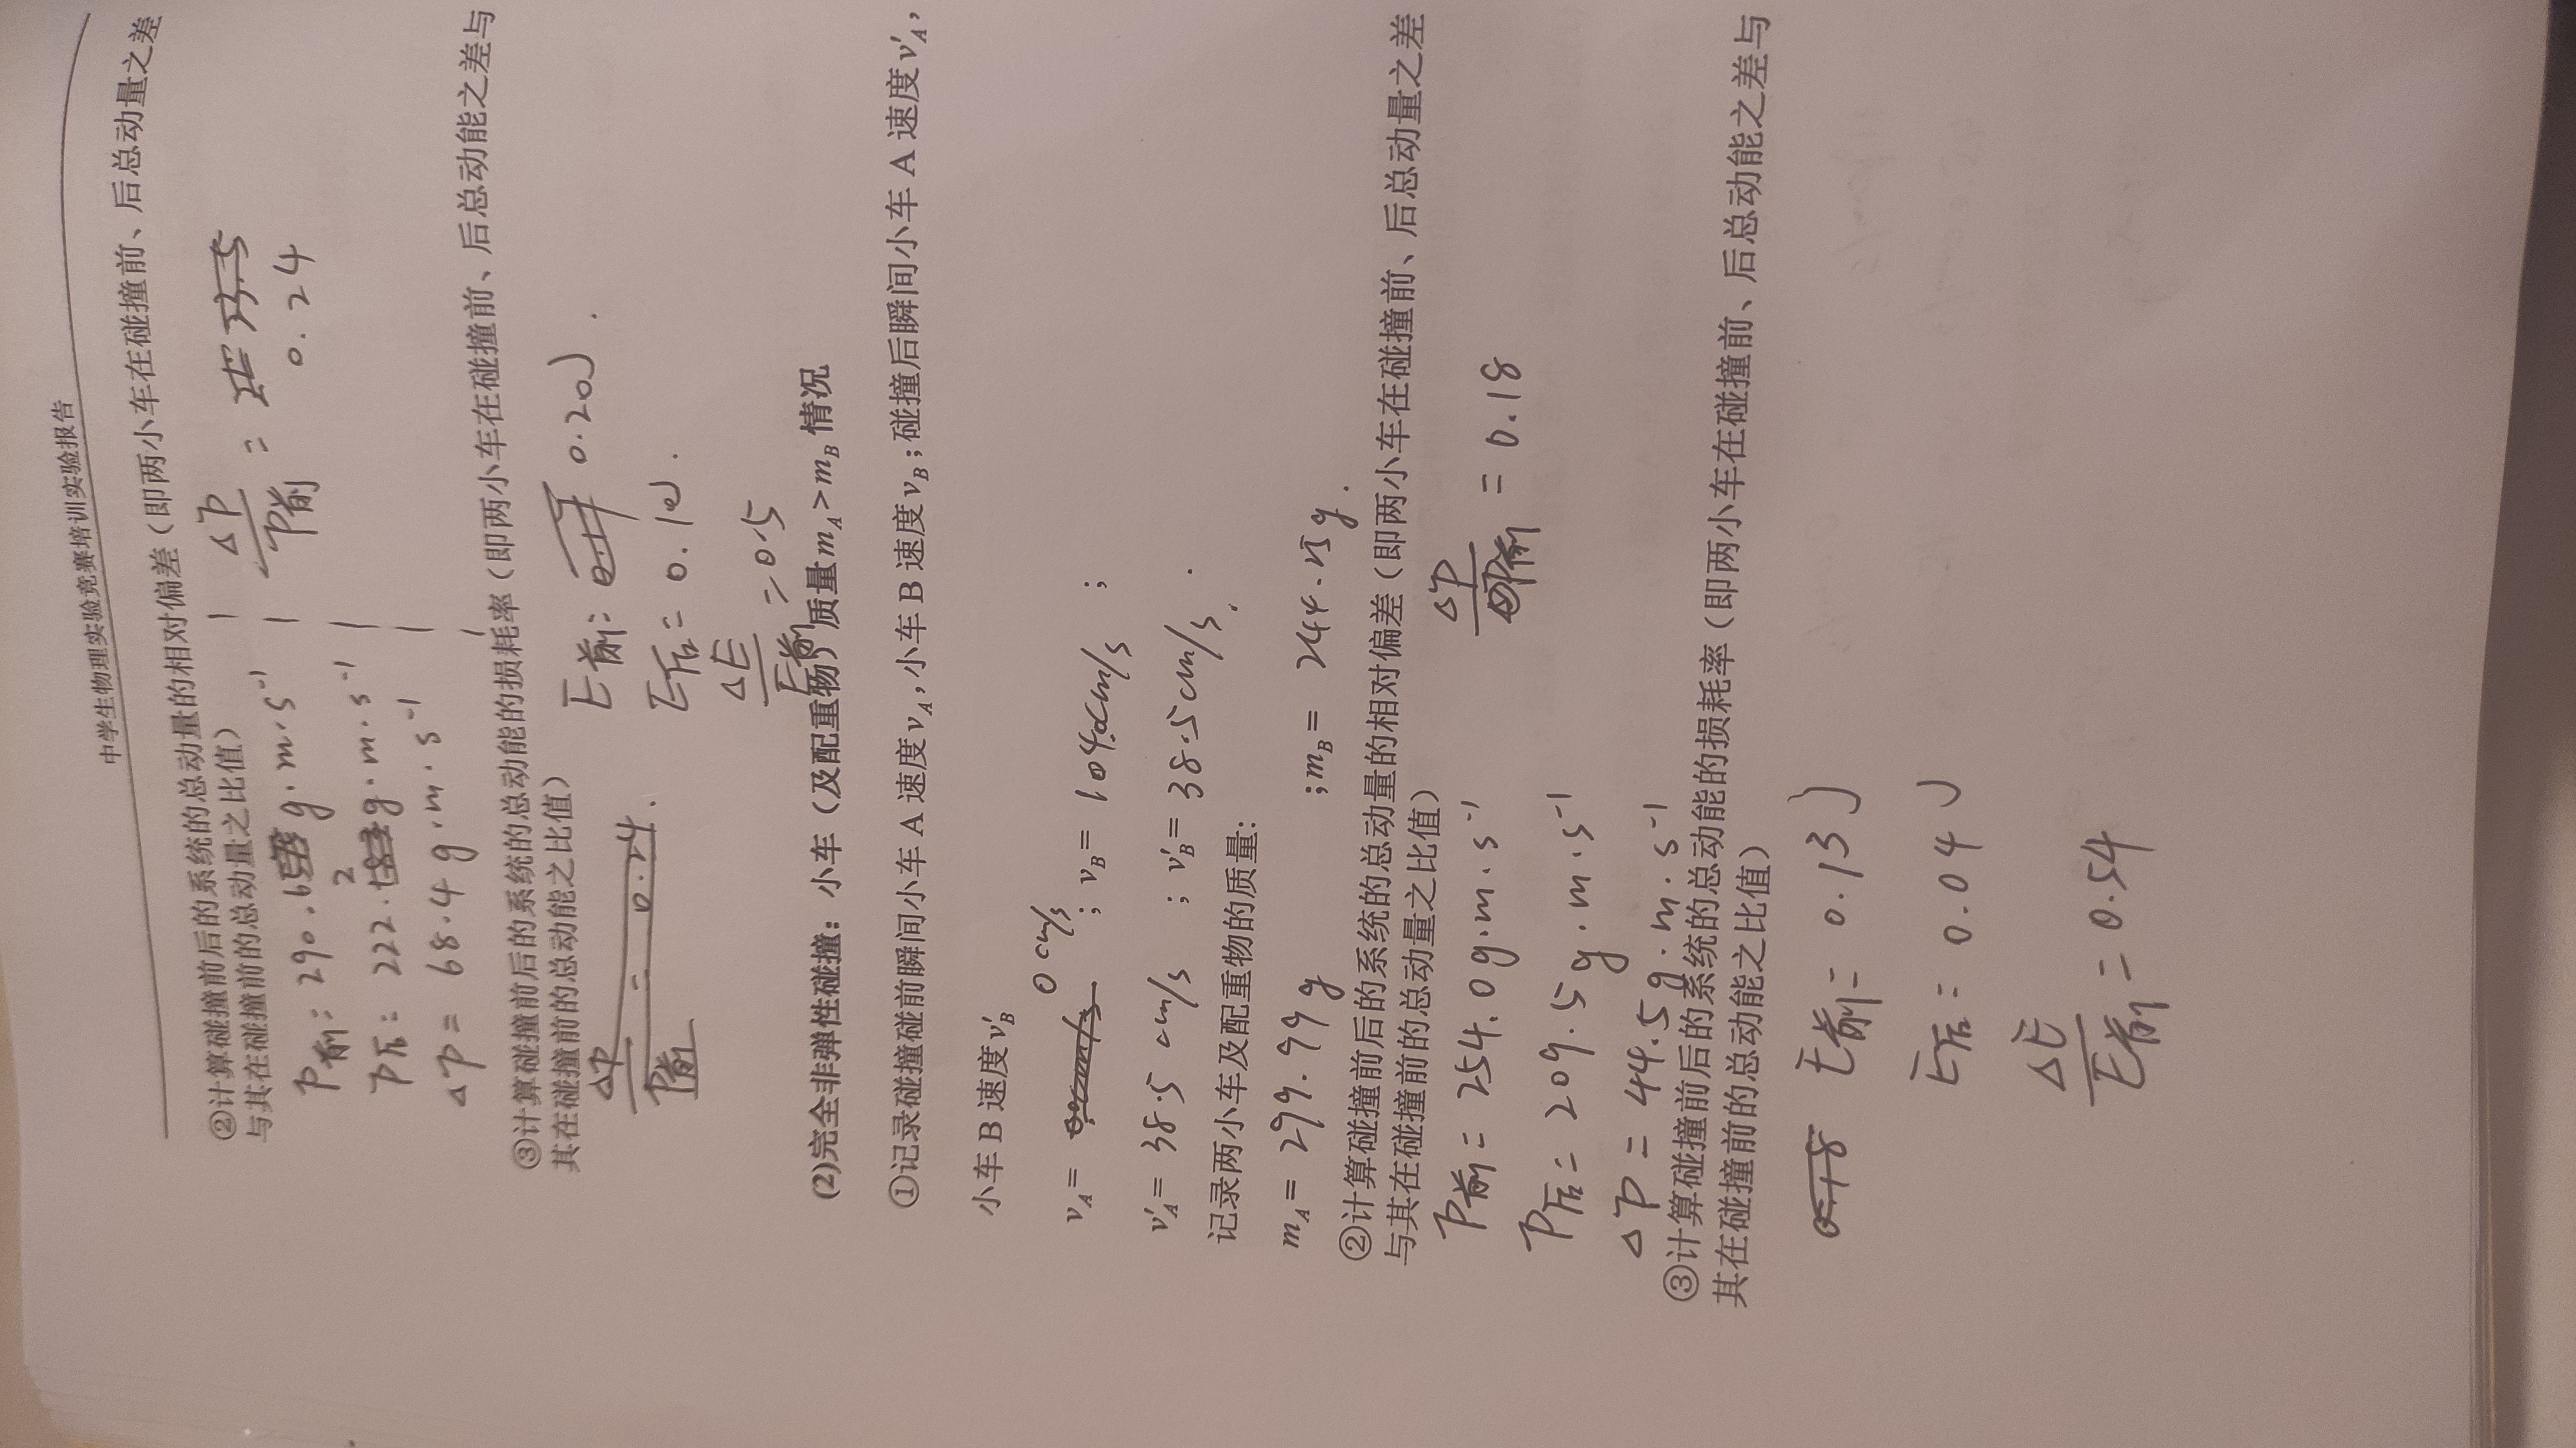 中学生物理实验竞赛培训实验报告
②计算碰撞前后的系统的总动量的相对偏差（即两小车在碰撞前、后总动量之差
与其在碰撞前的总动量之比值）
P前: 290.6 g·m·s⁻¹
P后: 222.2 g·m·s⁻¹
ΔP = 68.4 g·m·s⁻¹
ΔP/P前 = 0.24
③计算碰撞前后的系统的总动能的损耗率（即两小车在碰撞前、后总动能之差与
其在碰撞前的总动能之比值）
ΔP/P前 = 0.24.
E前: 0.20J.
E后= 0.1J.
ΔE/E前 = 0.5
(2)完全非弹性碰撞：小车（及配重物）质量 m_A > m_B 情况
①记录碰撞碰前瞬间小车 A 速度 v_A，小车 B 速度 v_B；碰撞后瞬间小车 A 速度 v′_A，
小车 B 速度 v′_B
v_A = 0 cm/s ; v_B = 104.0cm/s ;
v′_A = 38.5 cm/s ; v′_B = 38.5cm/s.
记录两小车及配重物的质量：
m_A = 299.9g ; m_B = 244.25g.
②计算碰撞前后的系统的总动量的相对偏差（即两小车在碰撞前、后总动量之差
与其在碰撞前的总动量之比值）
P前 = 254.0g·m·s⁻¹
ΔP/P前 = 0.18
P后 = 209.5g·m·s⁻¹
ΔP = 44.5g·m·s⁻¹
③计算碰撞前后的系统的总动能的损耗率（即两小车在碰撞前、后总动能之差与
其在碰撞前的总动能之比值）
E前 = 0.13J
E后 = 0.04J
ΔE/E前 = 0.54